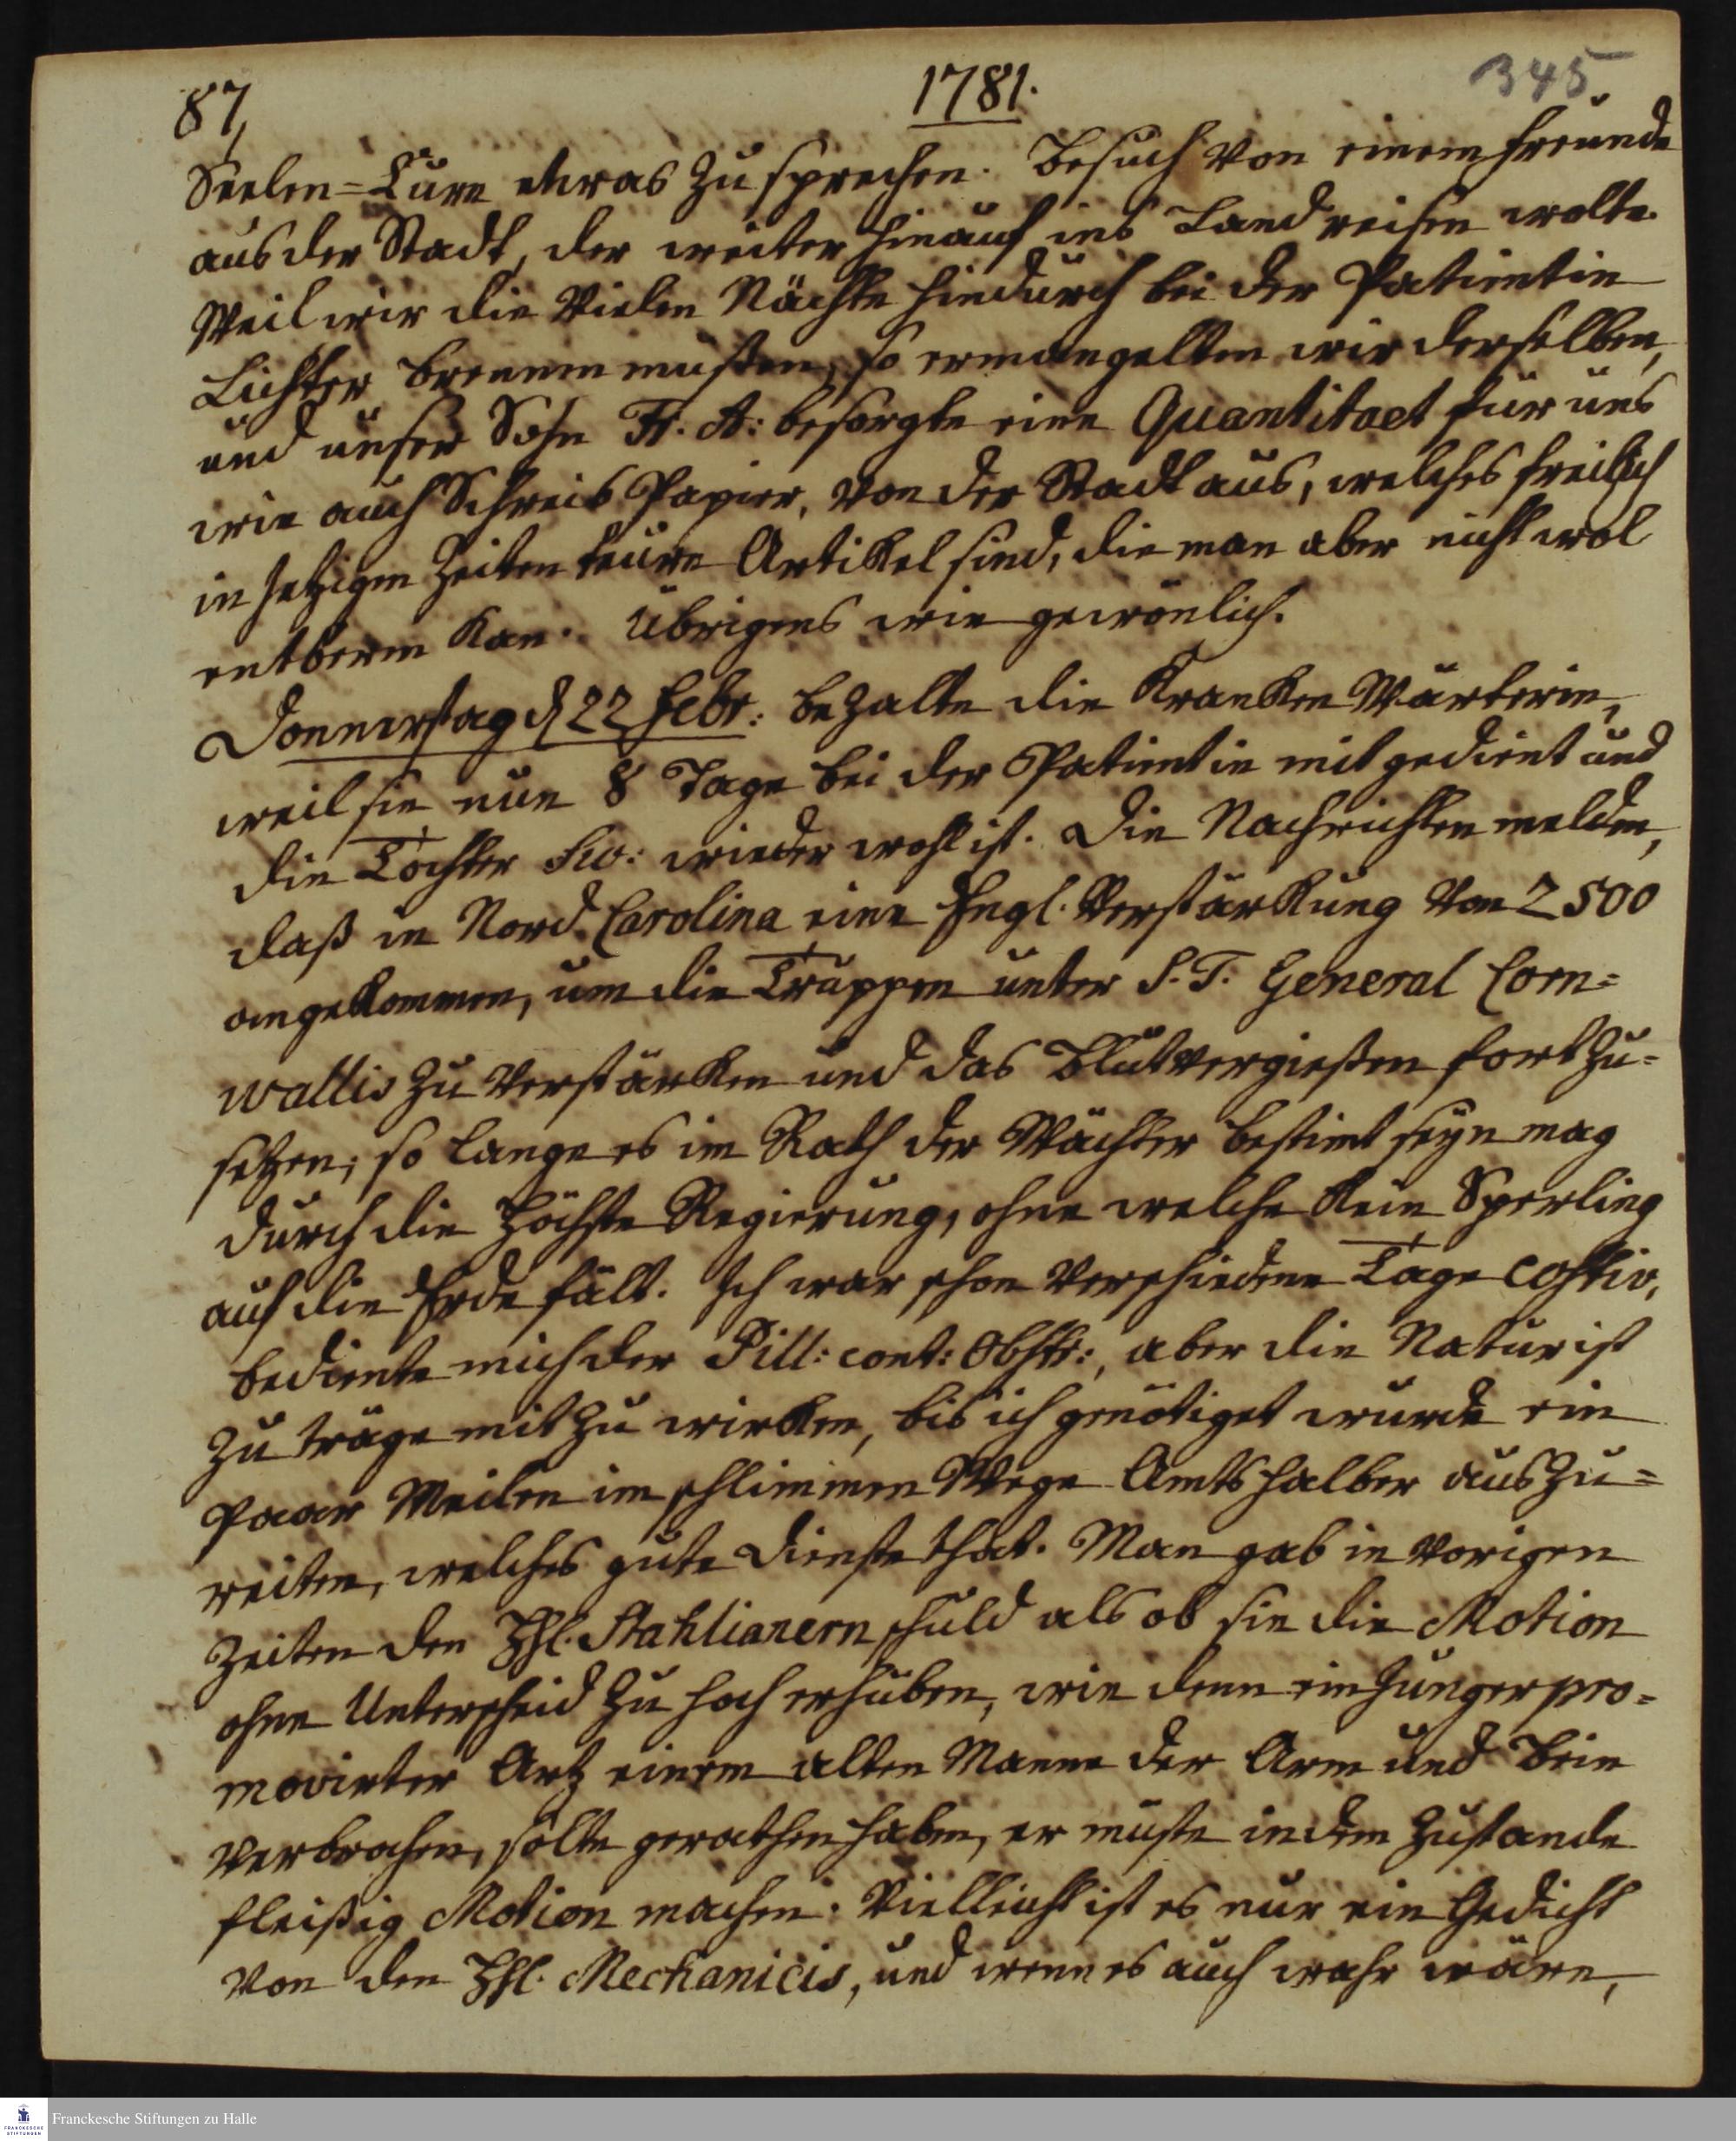 87,
1781.
345
Seelen=Cure etwas zu sprechen. Besuch von einem Freunde
aus der Stadt, der weiter hinauf ins Land reisen wolte.
Weil wir die vielen Nächte hindurch bei der Patientin
Lichter brennen musten, so ermangelten wir derselben,
und unser Sohn Fr. A: besorgte eine Quantitaet für uns
wie auch Schreib Papier, von der Stadt aus, welches freilich
in jetzigen Zeiten teure Artikel sind, die man aber nicht wol
entberen kan. Übrigens wie gewönlich.
Donnerstag d 22 Febr: bezalte die Kranken Wärterin,
weil sie nun 8 Tage bei der Patientin mit gedient und
die Tochter Sw: wieder wohl ist. Die Nachrichten melden,
daß in Nord Carolina eine Engl. Verstärkung von 2500
angekommen, um die Truppen unter S. T. General Corn=
wallis zu verstärken und das Blutvergießen fort zu=
setzen; so lange es im Rath der Wächter bestimt seyn mag
durch die Höchste Regierung, ohne welche kein Sperling
auf die Erde fält. Ich war schon verschiedene Tage costiv,
bediente mich der Pill: cont: Obstr:, aber die Natur ist
zu träge mit zu wirken, bis ich genötiget wurde ein
Paar Meilen im schlimmen Wege Amtshalber auszu=
reiten, welches gute Dienste that. Man gab in vorigen
Zeiten den HhL. Stahlianern schuld als ob sie die Motion
ohne Unterscheid zu hoch erhüben, wie denn ein junger pro=
movirter Artz einem alten Manne der Arm und Bein
verbrochen, solte gerathen haben, er müste in dem Zustande
fleißig Motion machen. Vielleicht ist es nur ein Gedicht
von den HhL. Mechanicis, und wenn es auch wahr wäre,
FRANCKESCHE STIFTUNGEN
Franckesche Stiftungen zu Halle